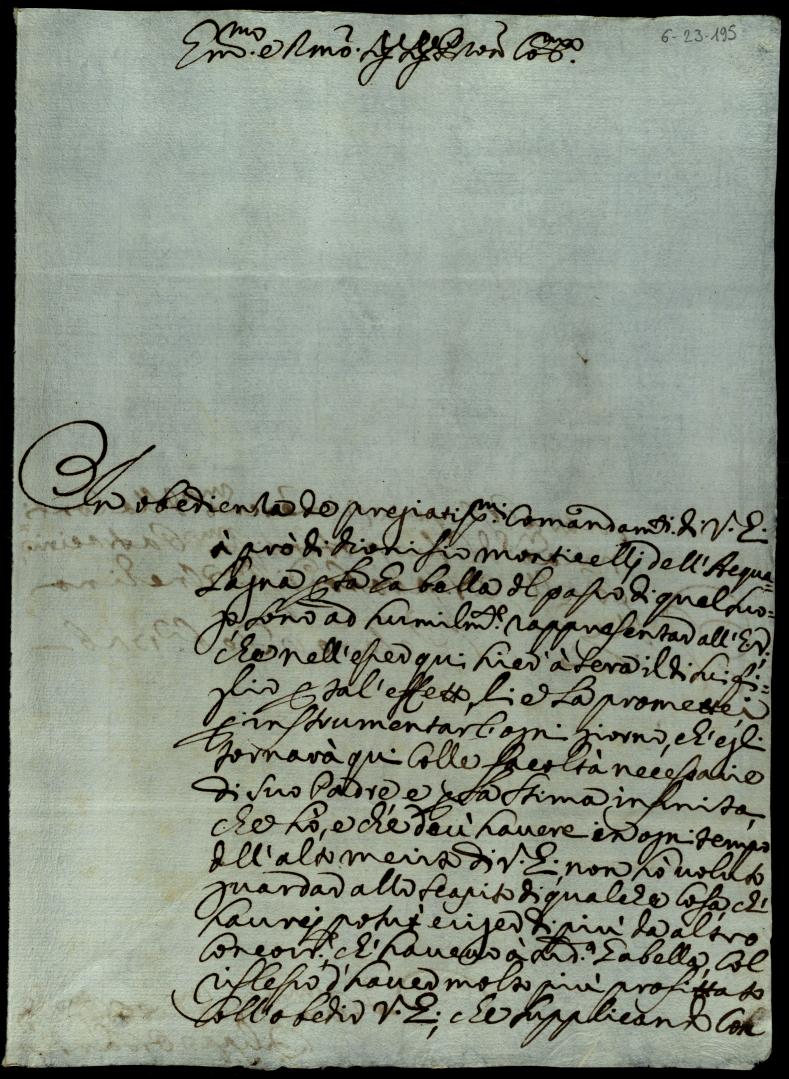 6-23-195
Em.mo e Rmo. Sig. Sig. Pron Co.mo
In obedienza de pregiatis.mi Comandam.ti di V. E.
à prò di Dionisio Monticelli dell'Acqua-
lagna p la Gabella del passo di quel luo-
go sono ad humilm.te rappresentar all'E.V.
che nell'esser qui hieri à sera il di lui fi-
glio p tal'effetto, li e la promettei
p instrumentarla ogni giorno, ch'egli
tornarà qui colle facoltà necessarie
di suo Padre e p la stima infinita,
che hò, e che devi havere in ogni tempo
dell'alto merito di V. E., non hò voluto
guardar allo scapito di qualche cosa, ch'
haurej potuto esiger di più da altro
concorr.te, ch'haveuo à d.a Gabella, col
riflesso d'haver molto più profittato
coll'obedir V. E., che supplicando con